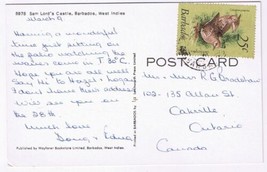 5873 Sam Lord's Castle, Barbados, West Indies
March 9
Having a wonderful
time just sitting on the
patio watching the
waves come in T 80°C.
Hope you are all well
Say Hi to Hazel
I don't have their address
will see you on
the 28th.
Much love
Doug + Edna
Published by Wayfarer Bookstore Limited, Barbados, West Indies
Barbados
25c
POST CARD
Mr & Mrs R G Bradshaw
102-135 Allan St
Oakville
Ontario
Canada